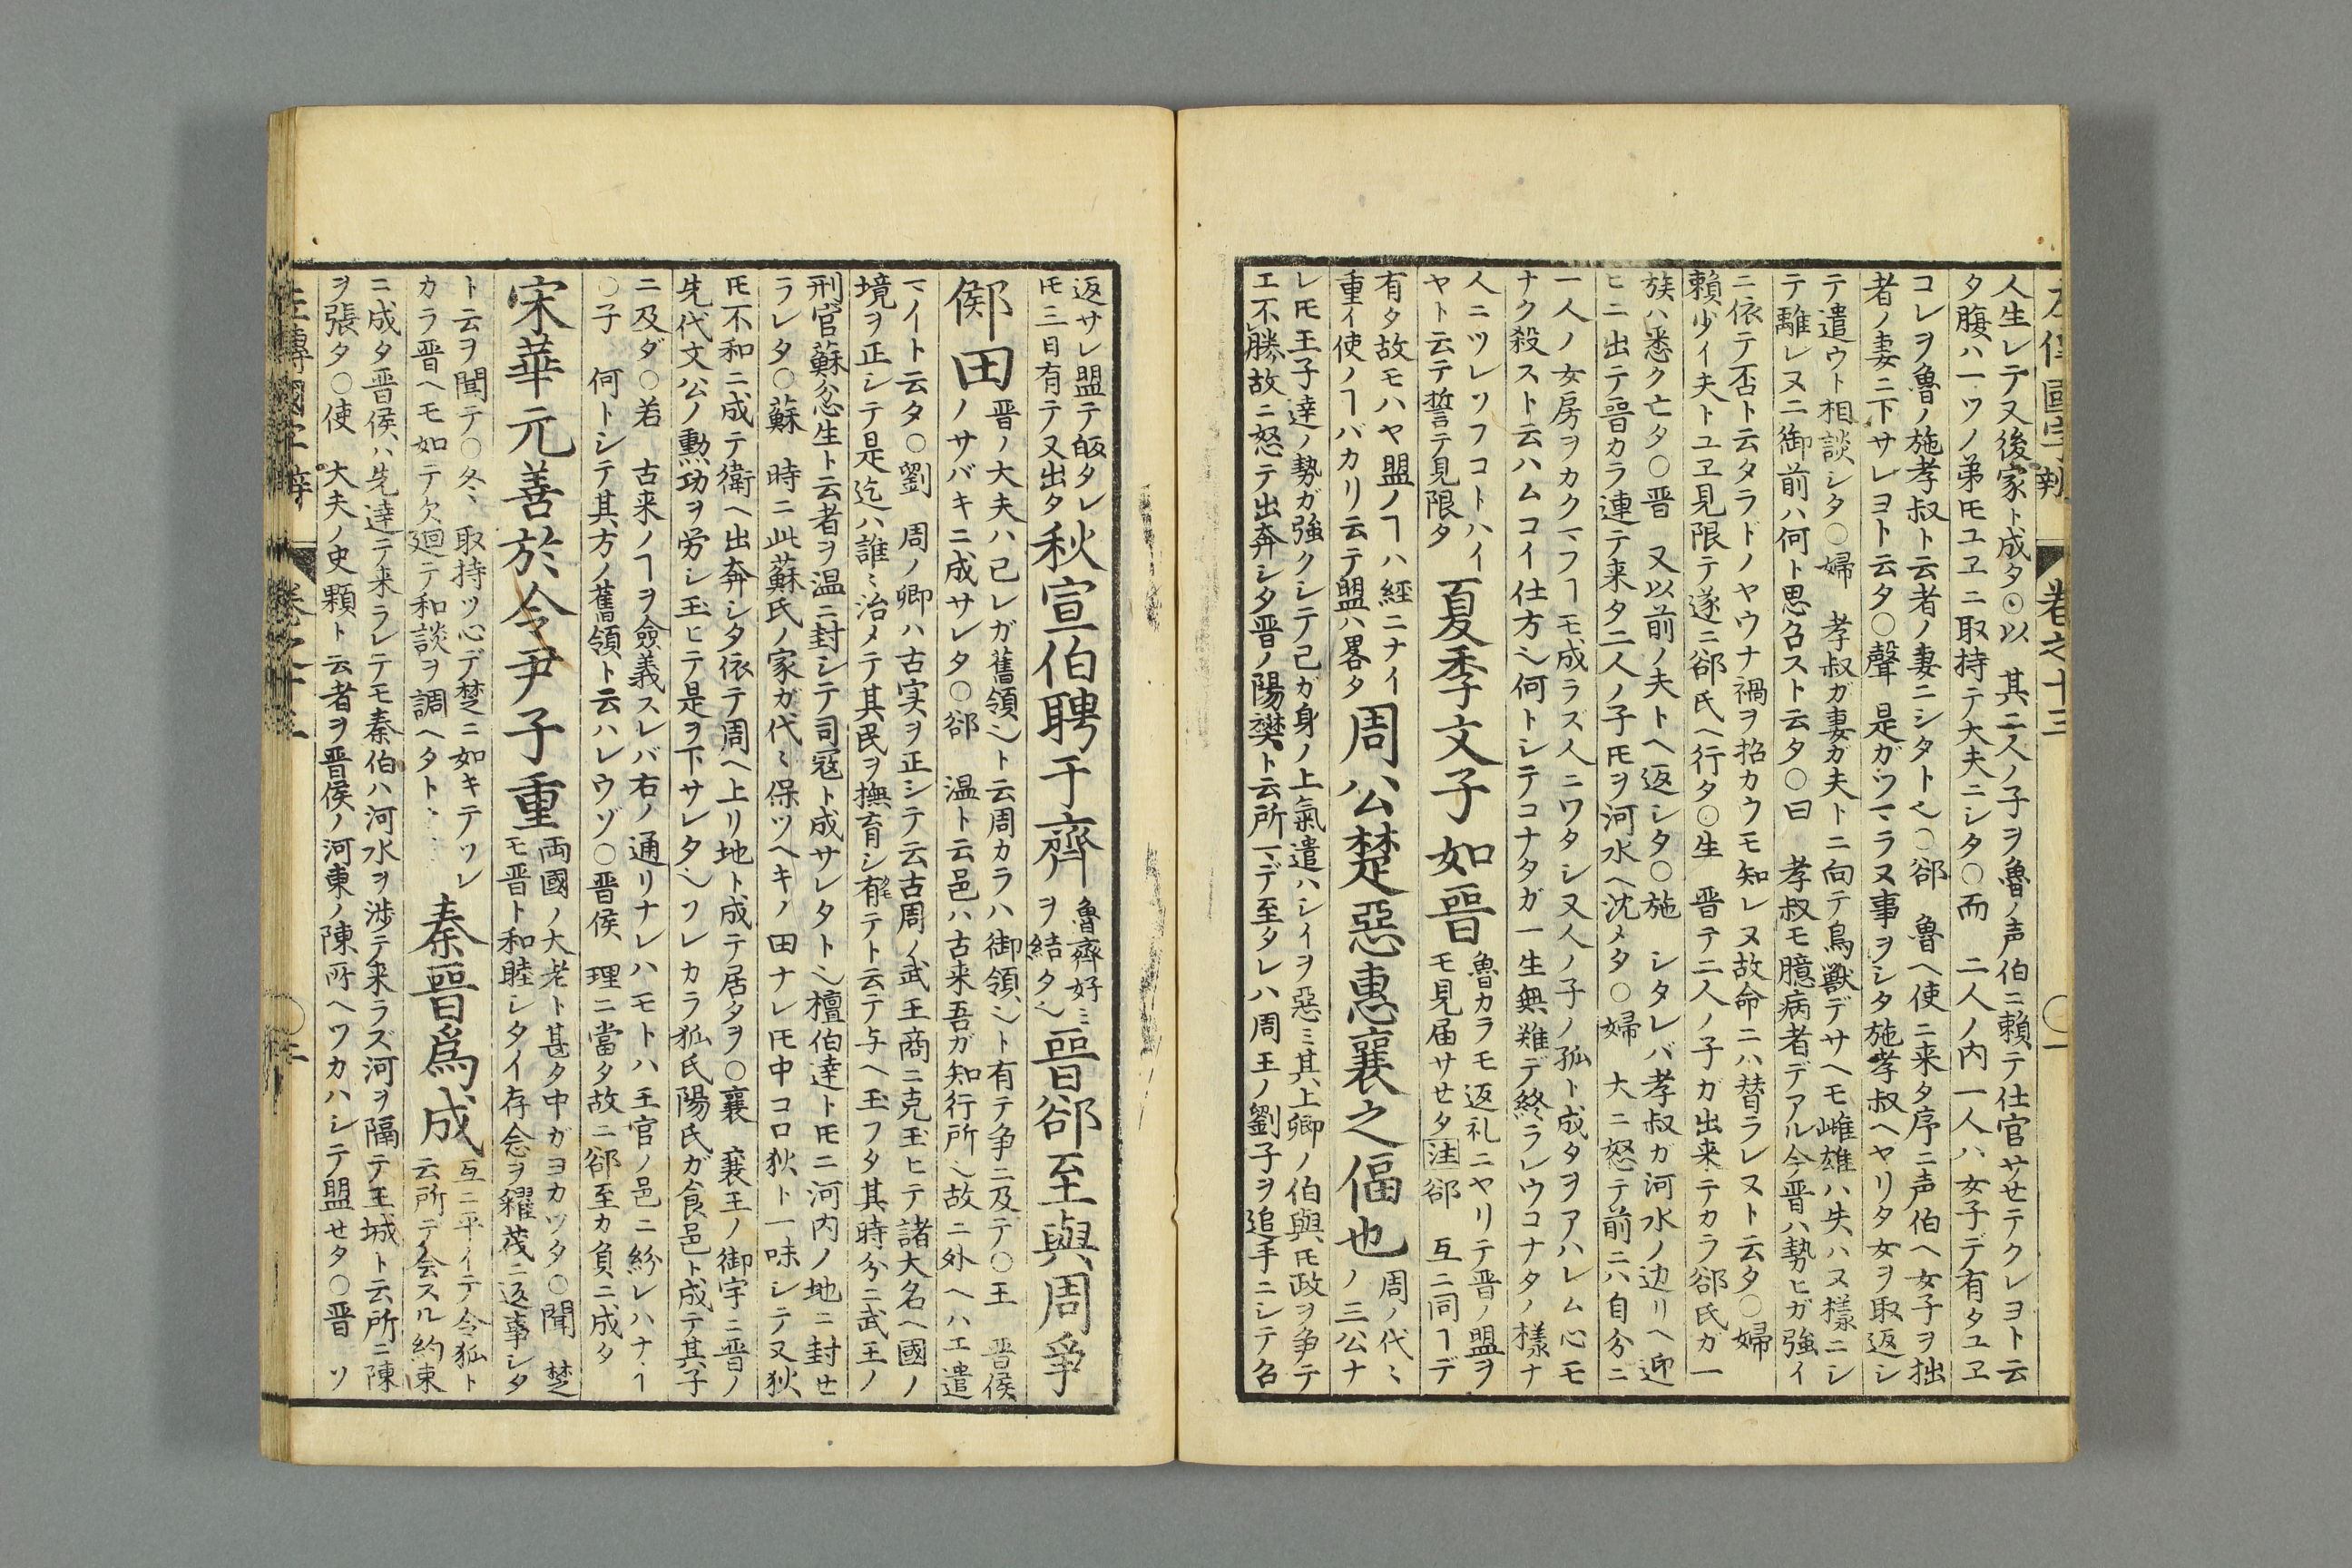 左傳國字辨 巻之十三 〇一
人生レテ又後家ト成タ〇以 其二人ノ子ヲ魯ノ声伯ニ頼テ仕官サセテクレヨト云
タ腹ハ一ツノ弟𪜈ユヱニ取持テ大夫ニシタ〇而 二人ノ内一人ハ女子デ有タユヱ
コレヲ魯ノ施孝叔ト云者ノ妻ニシタト也〇郤 魯ヘ使ニ来タ序ニ声伯ヘ女子ヲ拙
者ノ妻ニ下サレヨト云タ〇聲 是ガツマラヌ事ヲシタ施孝叔ヘヤリタ女ヲ取返シ
テ遣ウト相談シタ〇婦 孝叔ガ妻ガ夫トニ向テ鳥獣デサヘモ雌雄ハ失ハヌ様ニシ
テ離レヌニ御前ハ何ト思召スト云タ〇曰 孝叔モ臆病者デアル今晋ハ勢ヒガ強イ
ニ依テ否ト云タラドノヤウナ禍ヲ招カウモ知レヌ故命ニハ替ラレヌト云タ〇婦
頼少イ夫トユヱ見限テ遂ニ郤氏ヘ行タ〇生 晋テ二人ノ子ガ出来テカラ郤氏ガ一
族ハ悉ク亡タ〇晋 又以前ノ夫トヘ返シタ〇施 シタレバ孝叔ガ河水ノ辺リヘ迎
ヒニ出テ晋カラ連テ来タ二人ノ子𪜈ヲ河水ヘ沈メタ〇婦 大ニ怒テ前ニハ自分ニ
一人ノ女房ヲカクマフヿモ成ラズ人ニワタシ又人ノ子ノ孤ト成タヲアハレム心モ
ナク殺スト云ハムコイ仕方也何トシテコナタガ一生無難デ終ラレウコナタノ様ナ
人ニツレソフコトハイ
ヤト云テ誓テ見限タ
夏季文子如晉
魯カラモ返礼ニヤリテ晋ノ盟ヲ
モ見届サセタ注郤 互ニ同ヿデ
有タ故モハヤ盟ノヿハ經ニナイ
重イ使ノヿバカリ云テ盟ハ畧タ
周公楚惡惠襄之偪也
周ノ代ミ
ノ三公ナ
レ𪜈王子達ノ勢ガ強クシテ己ガ身ノ上氣遣ハシイヲ惡ミ其上卿ノ伯與𪜈政ヲ争テ
エ不勝故ニ怒テ出奔シタ晋ノ陽樊ト云所マデ至タレハ周王ノ劉子ヲ追手ニシテ召
返サレ盟テ皈タレ
𪜈三日有テ又出タ
秋宣伯聘于齊
魯齊好ミ
ヲ結タ也
晉郤至與周爭
鄇田
晋ノ大夫ハ己レガ舊領也ト云周カラハ御領也ト有テ争ニ及デ〇王 晋侯
ノサバキニ成サレタ〇郤 温ト云邑ハ古来吾ガ知行所也故ニ外ヘハエ遣
マイト云タ〇劉 周ノ卿ハ古実ヲ正シテ云古周ノ武王商ニ克玉ヒテ諸大名ヘ國ノ
境ヲ正シテ是迄ハ誰ミ治メテ其民ヲ撫育シ有テト云テ与ヘ玉フタ其時分ニ武王ノ
刑官蘇忿生ト云者ヲ温ニ封シテ司寇ト成サレタト也檀伯達ト𪜈ニ河内ノ地ニ封セ
ラレタ〇蘇 時ニ此蘇氏ノ家ガ代ミ保ツヘキノ田ナレ𪜈中コロ狄ト一味シテ又狄
𪜈不和ニ成テ衛ヘ出奔シタ依テ周ヘ上リ地ト成テ居タヲ〇襄 襄王ノ御宇ニ晋ノ
先代文公ノ勲功ヲ労シ玉ヒテ是ヲ下サレタ也ソレカラ狐氏陽氏ガ食邑ト成テ其子
ニ及ダ〇若 古来ノヿヲ僉義スレバ右ノ通リナレハモトハ王官ノ邑ニ紛レハナイ
〇子 何トシテ其方ノ舊領ト云ハレウゾ〇晋侯 理ニ當タ故ニ郤至カ負ニ成タ
宋華元善於令尹子重
両國ノ大老ト甚タ中ガヨカツタ〇聞 楚
モ晋ト和睦シタイ存念ヲ糴茷ニ返事シタ
ト云ヲ聞テ〇冬 取持ツ心デ楚ニ如キテソレ
カラ晋ヘモ如テ欠廻テ和談ヲ調ヘタト
秦晉爲成
互ニ平イテ令狐ト
云所テ会スル約束
ニ成タ晋侯ハ先達テ来ラレテモ秦伯ハ河水ヲ渉テ来ラズ河ヲ隔テ王城ト云所ニ陳
ヲ張タ〇使 大夫ノ史顆ト云者ヲ晋侯ノ河東ノ陳所ヘツカハシテ盟セタ〇晋 ソ
左傳國字辨 巻之十三 〇二